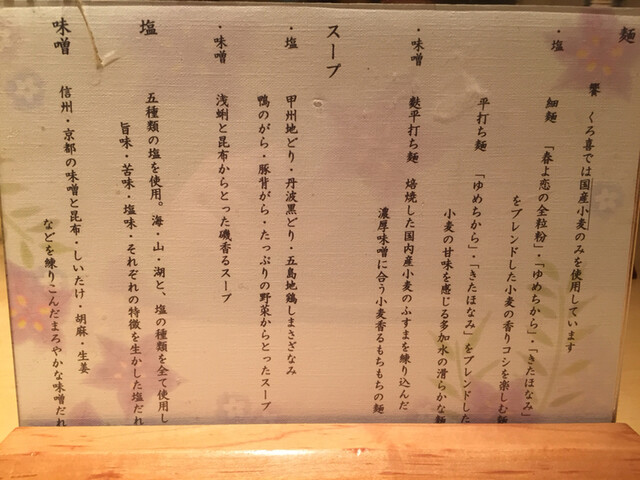 麺
饗 くろ喜では国産小麦のみを使用しています
・塩
細麺 「春よ恋の全粒粉」・「ゆめちから」・「きたほなみ」
をブレンドした小麦の香りコシを楽しむ麺
平打ち麺 「ゆめちから」・「きたほなみ」をブレンドした
小麦の甘味を感じる多加水の滑らかな麺
・味噌
麩平打ち麺 焙焼した国内産小麦のふすまを練り込んだ
濃厚味噌に合う小麦香るもちもちの麺
スープ
・塩
甲州地どり・丹波黒どり・五島地鶏しまさざなみ
鴨のがら・豚背がら・たっぷりの野菜からとったスープ
・味噌
浅蜊と昆布からとった磯香るスープ
塩
五種類の塩を使用。海・山・湖と、塩の種類を全て使用し
旨味・苦味・塩味・それぞれの特徴を生かした塩だれ
味噌
信州・京都の味噌と昆布・しいたけ・胡麻・生姜
などを練りこんだまろやかな味噌だれ